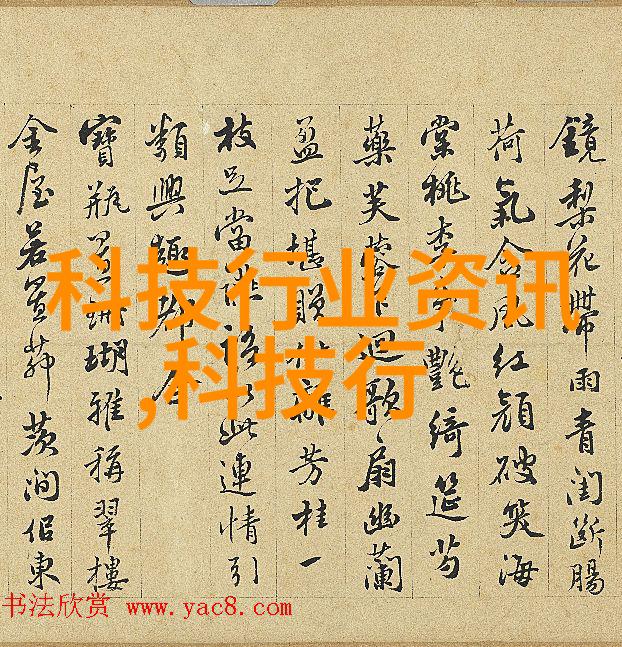 鏡梨花帶雨青閨斷腸
荷氣含風紅顏破笑海
棠桃李艷綺筵芍
藥芙蓉迴歌扇幽蘭
盈把堪贈芳桂一
枝足當語此連情引
類興趣合
寶瓶瑚雅稱翠樓
金屋若置茆茨澗侶東
科技行业资讯
,科技行
书法欣赏 www.yac8.com